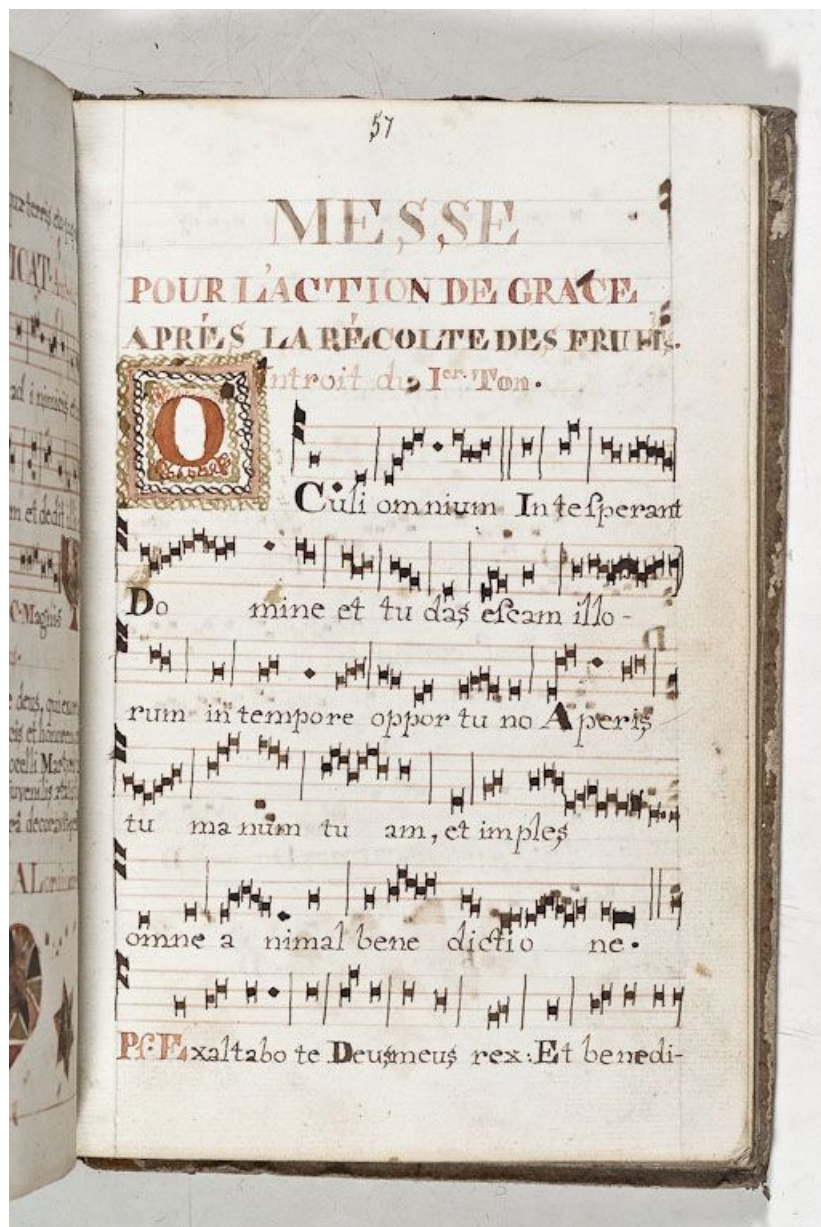 57
MESSE
POUR L'ACTION DE GRACE
APRÉS LA RÉCOLTE DES FRUITS.
Introit du I.er Ton.
OCuli omnium In te ſperant
Do mine et tu das eſcam illo-
rum in tempore oppor tu no Aperis
tu ma num tu am, et imples
omne a nimal bene dictio ne.
Pſ. Exaltabo te Deus meus rex: Et benedi-
ad
et dedit
C. Magnis
deus, qui
et honorem